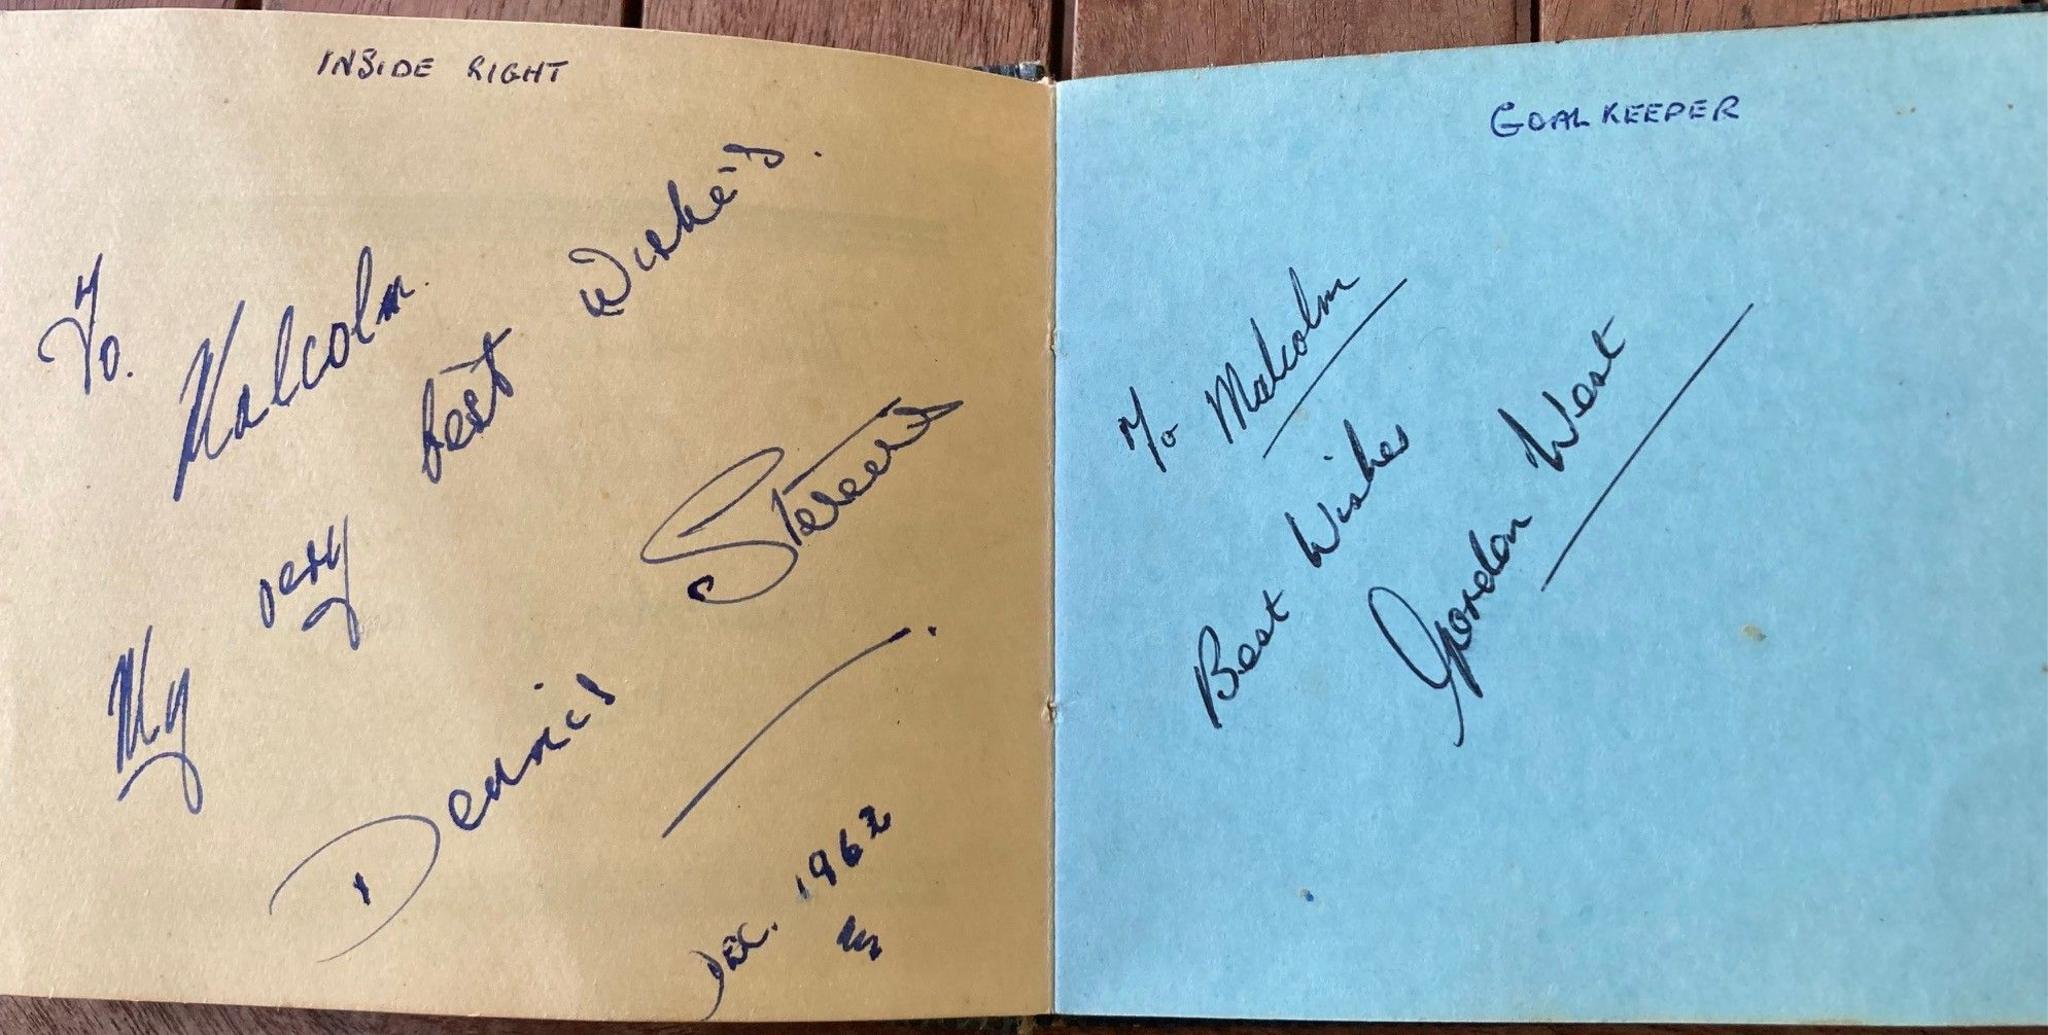 INSIDE RIGHT
To. Malcolm.
My very best Wishe's.
Dennis Stevens
Dec. 1962
GOALKEEPER
To Malcolm
Best Wishes
Gordon West